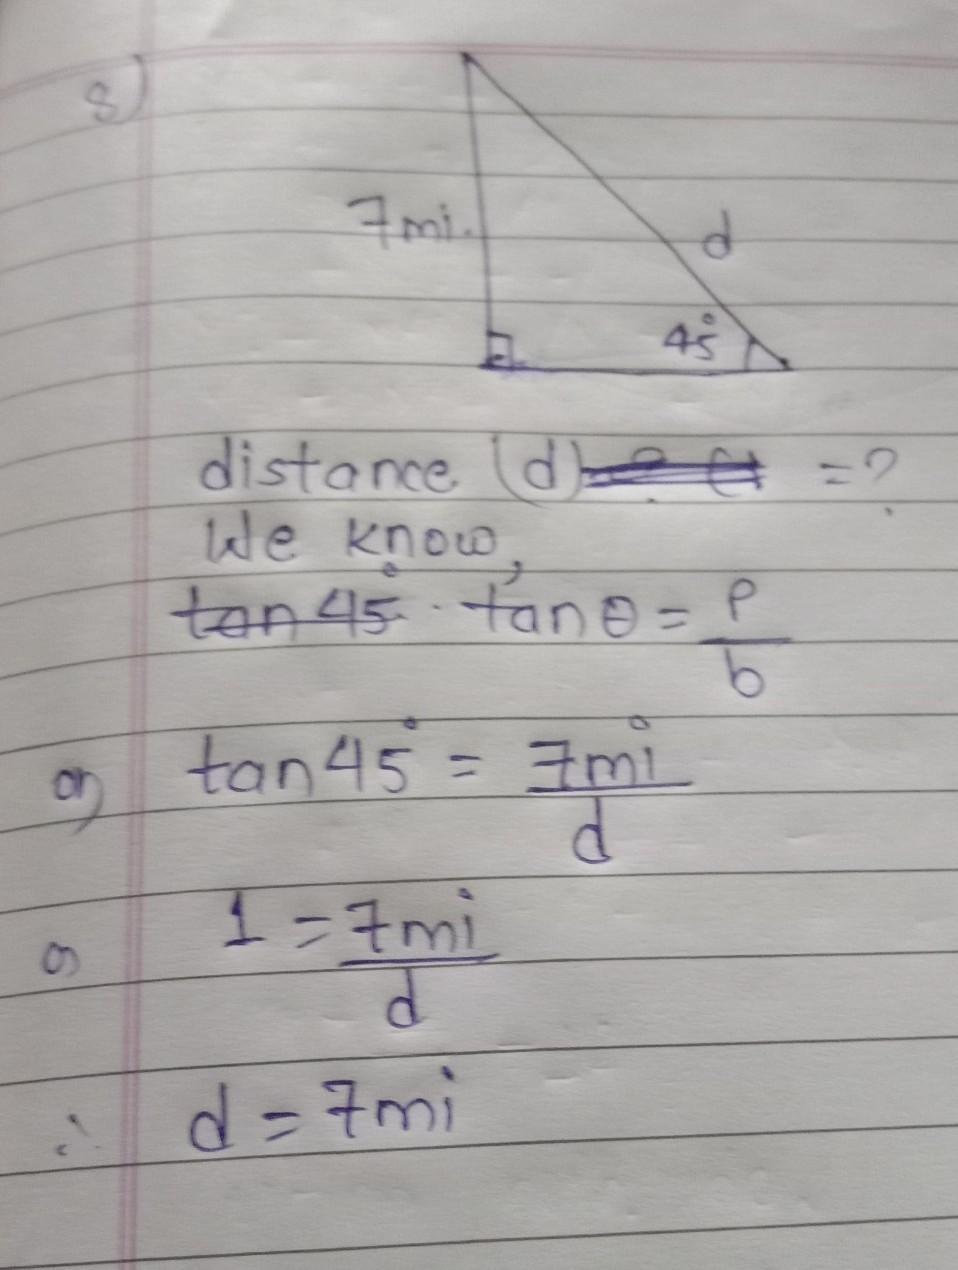 8)
7mi.
d
45°
distance (d) = ?
We know,
tan 45° . tanθ = P
b
or, tan 45° = 7mi
d
or 1 = 7mi
d
∴ d = 7mi